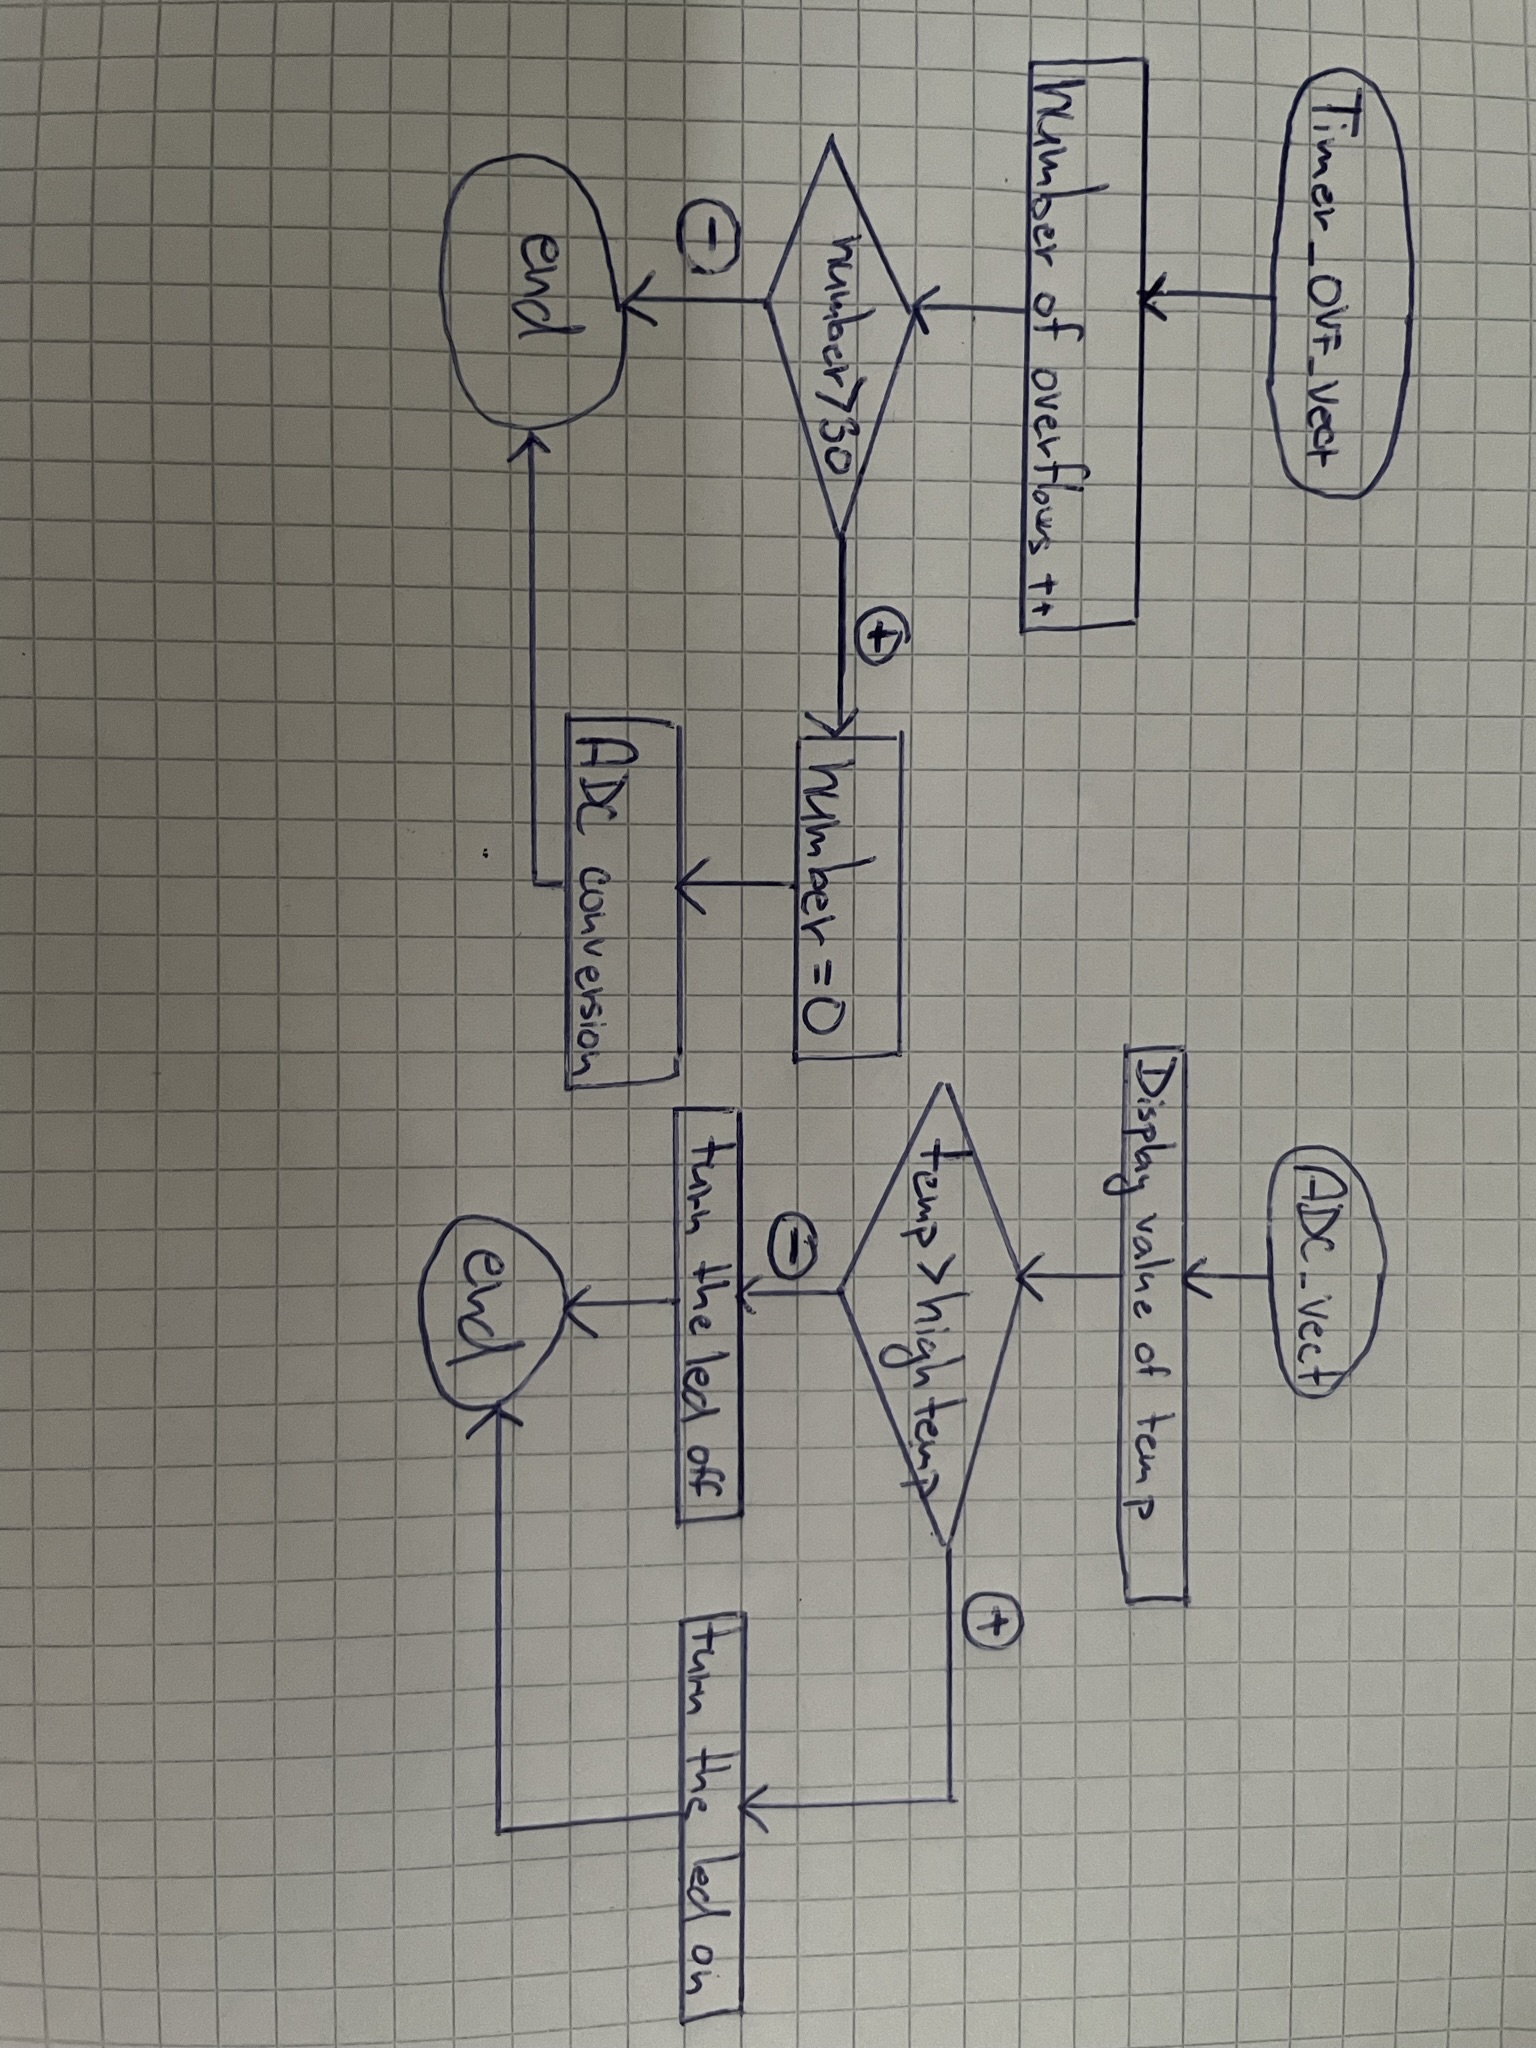 Timer_OVF_vect
number of overflows ++
number>30
+
number = 0
-
ADC conversion
end
ADC_vect
Display value of temp
temp>hightemp
+
-
turn the led off
turn the led on
end